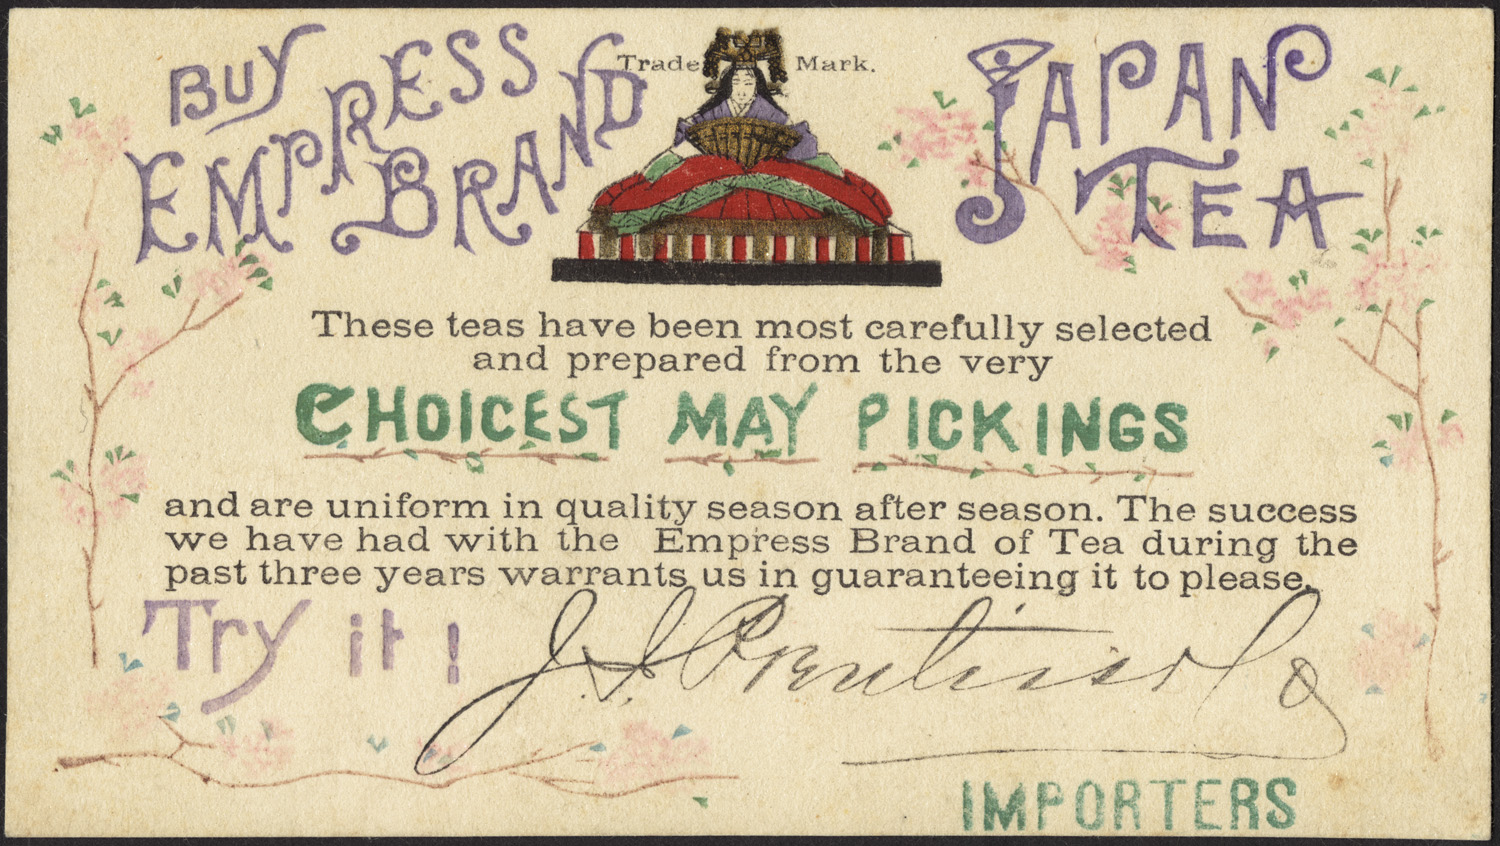 BUY
EMPRESS
EMPRESS BRAND
Trade Mark.
JAPAN
TEA
These teas have been most carefully selected
and prepared from the very
CHOICEST MAY PICKINGS
and are uniform in quality season after season. The success
we have had with the Empress Brand of Tea during the
past three years warrants us in guaranteeing it to please.
Try it!
J. S. Prentiss & Co
IMPORTERS